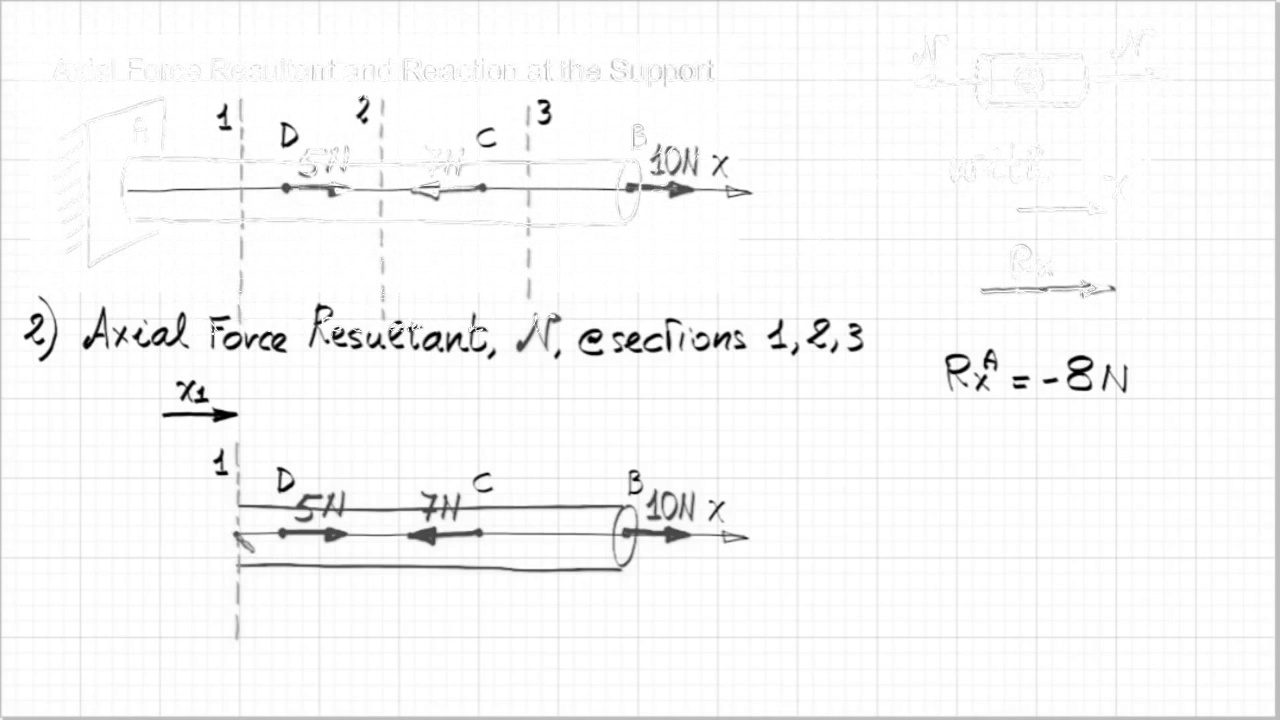 Axial Force Resultant and Reaction at the Support
N N
1 2 3
A D C B
5N 7N 10N x
write
x
Rx
2) Axial Force Resultant, N, @sections 1,2,3
RxA = -8N
x1
1
D C B
5N 7N 10N x